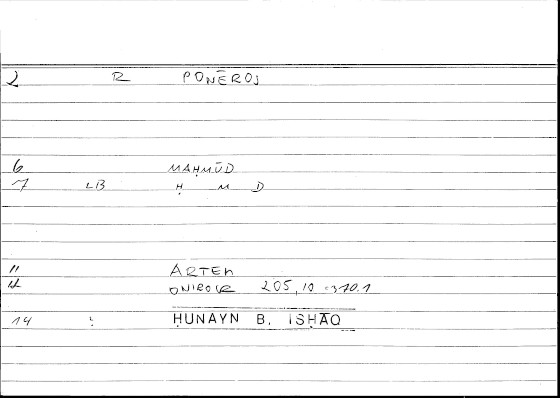 2 R PONĒROS
6 MAḤMŪD
7 LB Ḥ M D
11 ARTEM
12 ONIROCR 205,10 = 370.1
14 : ḤUNAYN B. ISḤĀQ